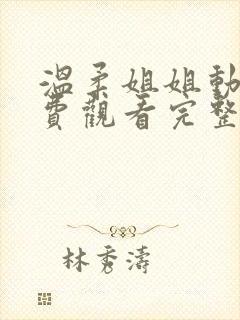 溫柔姐姐動
費觀看完整
林秀濤